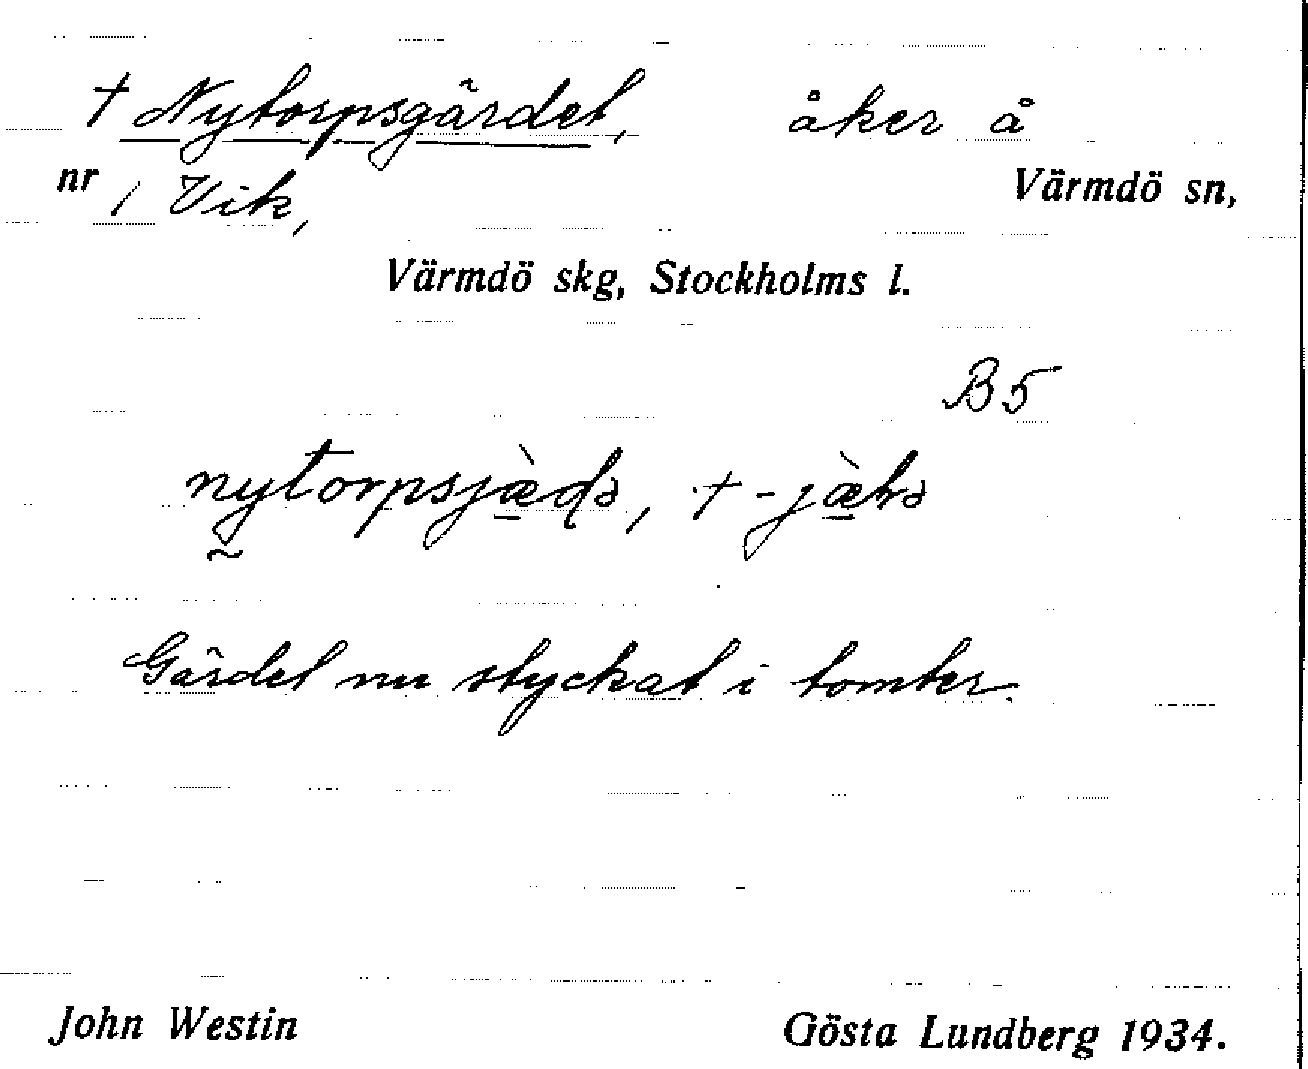 † Nytorpsgärdet, åker å
nr 1 Vik, Värmdö sn,
Värmdö skg, Stockholms l.
B5
nytorpsjæ̀ḍə, † -jæ̀tə
Gärdet nu styckat i tomter.
John Westin Gösta Lundberg 1934.